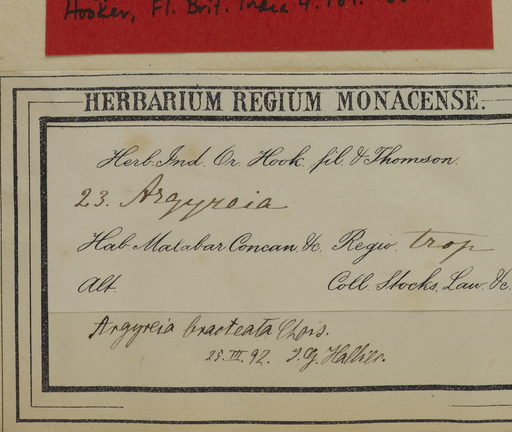 Hooker, Fl. Brit. India 4.
HERBARIUM REGIUM MONACENSE.
Herb. Ind. Or. Hook. fil. & Thomson.
23. Argyreia
Hab. Malabar Concan. &c. Regio. trop
Alt. Coll. Stocks, Law. &c.
Argyreia bracteata Chois.
25.III.92. H. Hallier.